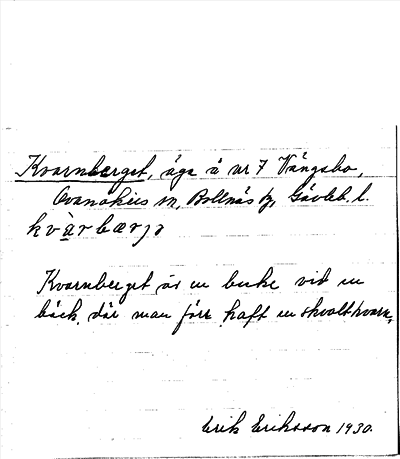 Kvarnberget, äga å nr 7 Vängsbo,
Ovanåkers sn, Bollnäs fg, Gävleb. l.
kvàrbærjə
Kvarnberget är en backe vid en
bäck, där man förr haft en skvaltkvarn,
Erik Eriksson 1930.